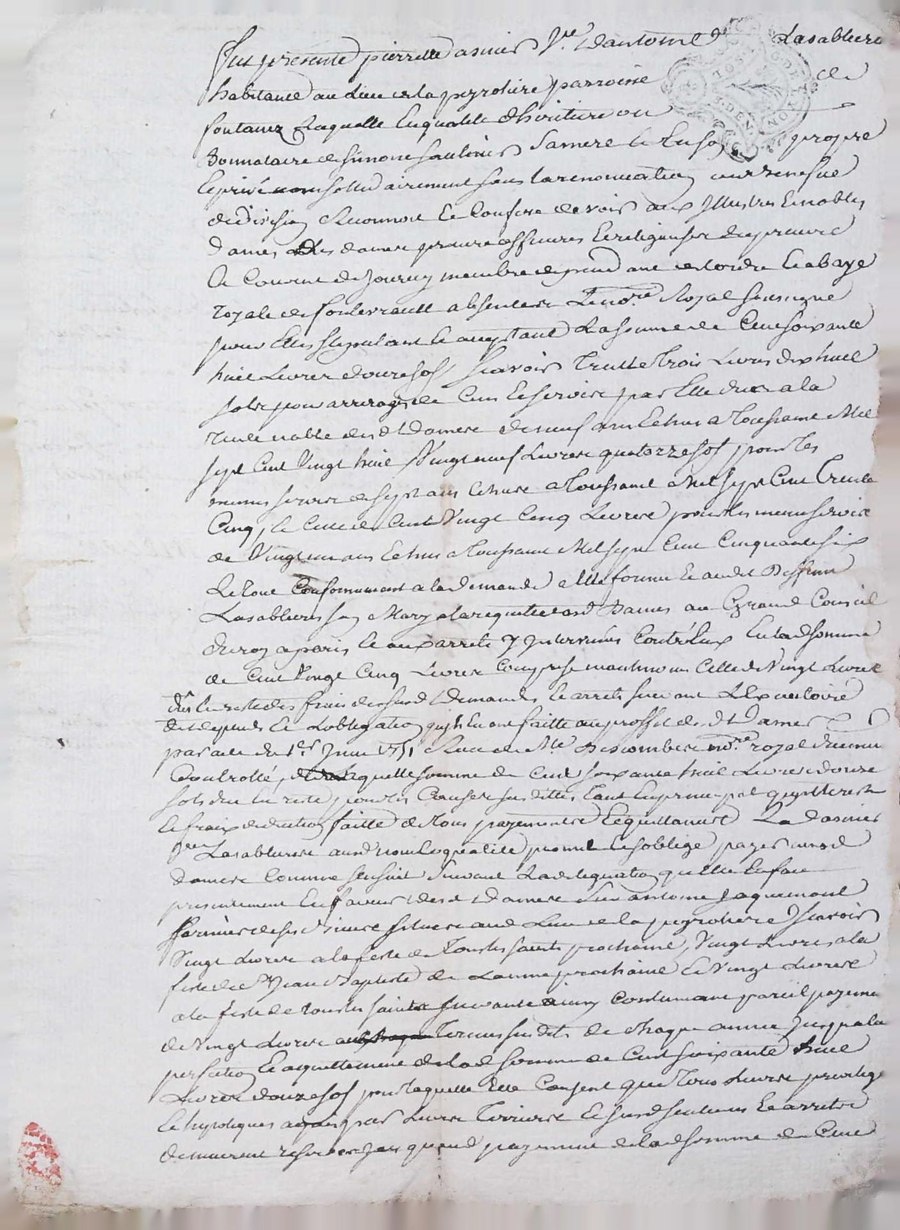 Fut presente pierrette asnier Vve d'antoine Lasabliere
habitante au Lieu de la peyrotiere parroisse de
fontanez Laquelle En qualité d'heritiere ou
donnataire de simone sa mere de En son propre
Le privé solidairement sans la renonciation au benefice
de division Reconnoit Et Confesse devoir aux Illustres Et nobles
dames Les dames prieure officieres Et religieuses du prieuré
Et Couvent de Jourcey membre dependant de l'ordre Et abaye
royale de fontevrault absentes Le nore Royal soussigné
pour Elles stipulant Et acceptant La somme de Cent soixante
huit Livres douze sols Scavoir Trente Trois Livres dix huit
sols pour arrerages de Cens Et servis par Elle dus a la
rente noble des dt dames de neuf ans Echus a Toussaint Mil
sept Cent Vingt huit Vingt neuf Livres quatorze sols pour les
memes servis de sept ans Echus a Toussaint Mil sept Cent Trente
Cinq, Et Celle de Cent Vingt Cinq Livres pour les memes servis
de Vingt un ans Echus a Toussaint Mil sept Cent Cinquante six
Le Tout Conformement a la demande Elle formée Et audit deffunt
Lasabliere son Mary a la requete desd dames au Grand Conseil
du roy a paris Et aux arrets y Intervenus Contre Eux En lad somme
de Cent Vingt Cinq Livres Comprise neanmoins Celle de Vingt Livres
du Reste des frais desd demandes Et arrets suivant L'Executoire
de depens Et L'obligation quils En ont faitte au proffit des dt Dames
par acte du 1er Juin 1751 Receu Me Descombes nore royal
Controllé, Laquelle somme de Cent soixante huit Livres douze
sols due En reste pour les Causes susdittes tant En principal qu'Interets
Et frais deduction faitte de tous payements Et quittances La d asnier
Vve Lasabliere aud nom Et qualité promet Et s'oblige payer auxd
dames Comme s'ensuit Suivant La delegation qu'Elle En fait
presentement En faveur desd dames Sur antoine Jaquemont
fermier de ses biens situés aud Lieu de la peyrotiere Scavoir
Vingt Livres a la feste de Toussaints prochaine, Vingt Livres a la
feste de St Jean Baptiste de L'année prochaine Et Vingt Livres
a la feste de tous les saints suivante ainsy Continuant pareil payement
de Vingt Livres Termes susdits de chaque année Jusqu'a la
perfection Et acquittement de lad somme de Cent soixante huit
Livres douze sols pour laquelle Elle Consent que Tous Leurs privileges
Et hypoteques acquis par Leurs Terriers Et susd sentences Et arrets
demeurent reservés jusqu'au payement de lad somme de Cent